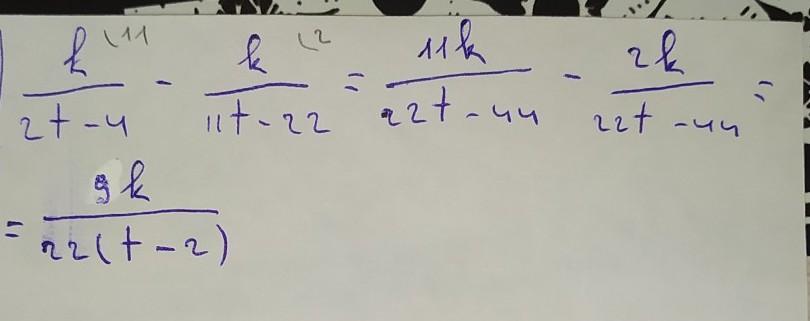 k/(2t-4) \11 - k/(11t-22) \2 = 11k/(22t-44) - 2k/(22t-44) =
= 9k/(22(t-2))